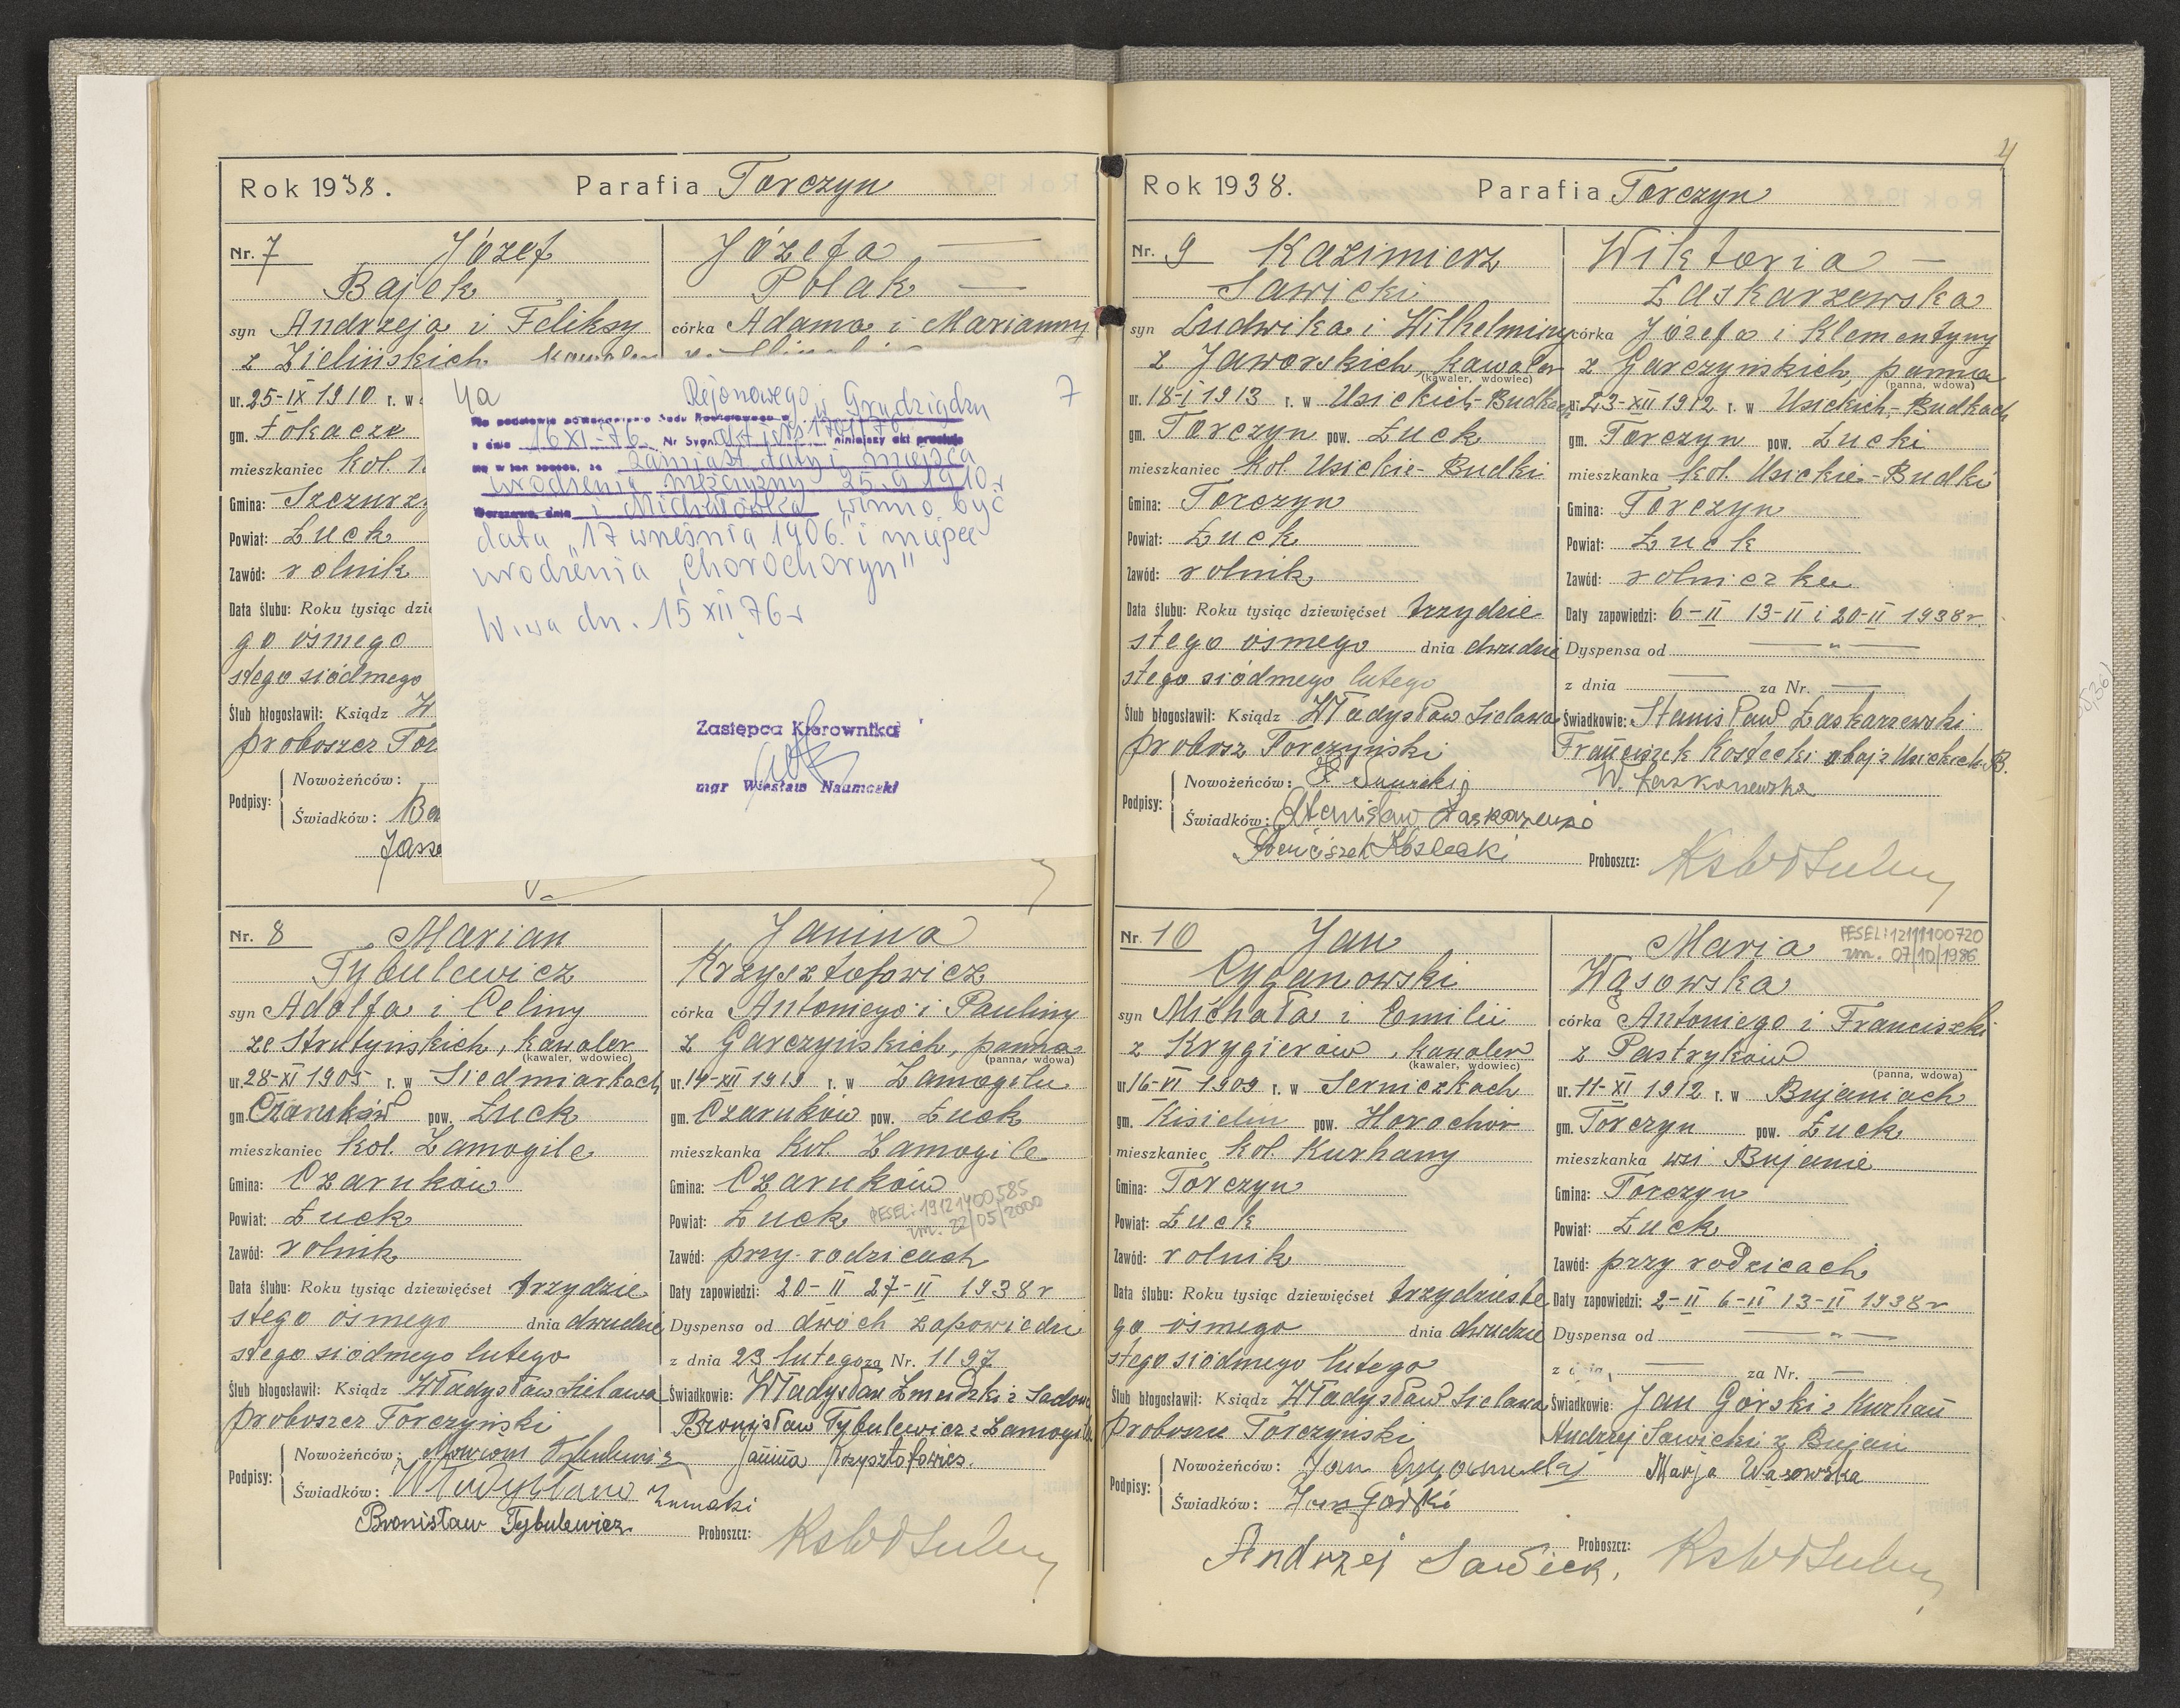 Rok 1938. Parafia Torczyn
Nr. 7 Józef
Bajek
syn Andrzeja i Feliksy
z Zielińskich kawaler
ur. 25-IX 1910 r. w
gm. Łokacze
mieszkaniec kol.
Gmina: Szczurzy
Powiat: Łuck
Zawód: rolnik
Data ślubu: Roku tysiąc dzie
go ósmego
stego siódmego
Ślub błogosławił: Ksiądz W
proboszcz Tor
Podpisy: Nowożeńców:
Świadków: Ba
Jass
Józefa
Polak
córka Adama i Marianny
4a Rejonowego w Grudziądzu 7
z dnia 16 XI-76 Nr Sygn. niniejszy akt prostuje
się w ten sposób, że zamiast daty i miejsca
urodzenia mężczyzny 25.9 1910 r
Warszawa, dnia i Michałówka winno być
data "17 września 1906." i miejsce
urodzenia "Chorochoryn"
W-wa dn. 15 XII 76 r
Zastępca Kierownika
mgr Wiesław
Nr. 8 Marian
Tybulewicz
syn Adolfa i Celiny
ze Strutyńskich, kawaler
(kawaler, wdowiec)
ur. 28-XI 1905 r. w Siedmiarkach
gm. Czaruków pow. Łuck
mieszkaniec kol. Zamogile
Gmina: Czaruków
Powiat: Łuck
Zawód: rolnik
Data ślubu: Roku tysiąc dziewięćset trzydzie
stego ósmego dnia dwudzie
stego siódmego lutego
Ślub błogosławił: Ksiądz Władysław Sielawa
proboszcz Torczyński
Podpisy: Nowożeńców: Marian Tybulewicz Janina Krzysztofowicz.
Świadków: Władysław
Bronisław Tybulewicz Proboszcz:
Janina
Krzysztofowicz
córka Antoniego i Pauliny
z Garczyńskich, panna
(panna, wdowa)
ur. 14-XII 1919 r. w Zamogilu
gm. Czaruków pow. Łuck
mieszkanka kol. Zamogile
Gmina: Czaruków
PESEL: 19121400585
Powiat: Łuck
zm. 22/05/2000
Zawód: przy rodzicach
Daty zapowiedzi: 20-II 27-II 1938 r
Dyspensa od dwóch zapowiedzi
z dnia 23 lutego za Nr. 1197
Świadkowie: Władysław Żmudzki z Sadowa
Bronisław Tybulewicz z Zamogila
4
Rok 1938. Parafia Torczyn
Nr. 9 Kazimierz
Sawicki
syn Ludwika i Wilhelminy
z Jaworskich, kawaler
(kawaler, wdowiec)
ur. 18-I 1913 r. w Usickich-Budkach
gm. Torczyn pow. Łuck
mieszkaniec kol. Usickie-Budki
Gmina: Torczyn
Powiat: Łuck
Zawód: rolnik
Data ślubu: Roku tysiąc dziewięćset trzydzie
stego ósmego dnia dwudzie
stego siódmego lutego
Ślub błogosławił: Ksiądz Władysław Sielawa
probosz Torczyński
Podpisy: Nowożeńców: K Sawicki W. Łaskarzewska
Świadków: Stanisław Łaskarzewski
Franciszek Kostecki Proboszcz:
Wiktoria
Łaskarzewska
córka Józefa i Klementyny
z Garczyńskich, panna
(panna, wdowa)
ur. 23-XII 1912 r. w Usickich-Budkach
gm. Torczyn pow. Łucki
mieszkanka kol. Usickie-Budki
Gmina: Torczyn
Powiat: Łuck
Zawód: rolniczka
Daty zapowiedzi: 6-II 13-II i 20-II 1938 r.
Dyspensa od — " —
z dnia — za Nr. —
Świadkowie: Stanisław Łaskarzewski
Franciszek Kostecki obaj z Usickich-B.
Nr. 10 Jan
Cyganowski
syn Michała i Emilii
z Krygierów, kawaler
(kawaler, wdowiec)
ur. 16-VI 1909 r. w Serniczkach
gm. Kisielin pow. Horochów
mieszkaniec kol. Kurhany
Gmina: Torczyn
Powiat: Łuck
Zawód: rolnik
Data ślubu: Roku tysiąc dziewięćset trzydzieste
go ósmego dnia dwudzie
stego siódmego lutego
Ślub błogosławił: Ksiądz Władysław Sielawa
Proboszcz Torczyński
Podpisy: Nowożeńców: Jan Cyganowski Marja Wąsowska
Świadków: Jan Górski
Andrzej Sawicki Proboszcz:
PESEL: 12111100720
Maria
zm. 07/10/1986
Wąsowska
córka Antoniego i Franciszki
z Pastryków
(panna, wdowa)
ur. 11-XI 1912 r. w Bujaniach
gm. Torczyn pow. Łuck
mieszkanka wsi Bujanie
Gmina: Torczyn
Powiat: Łuck
Zawód: przy rodzicach
Daty zapowiedzi: 2-II 6-II 13-II 1938 r
Dyspensa od — " —
z dnia — za Nr. —
Świadkowie: Jan Górski z Kurhan
Andrzej Sawicki z Bujań